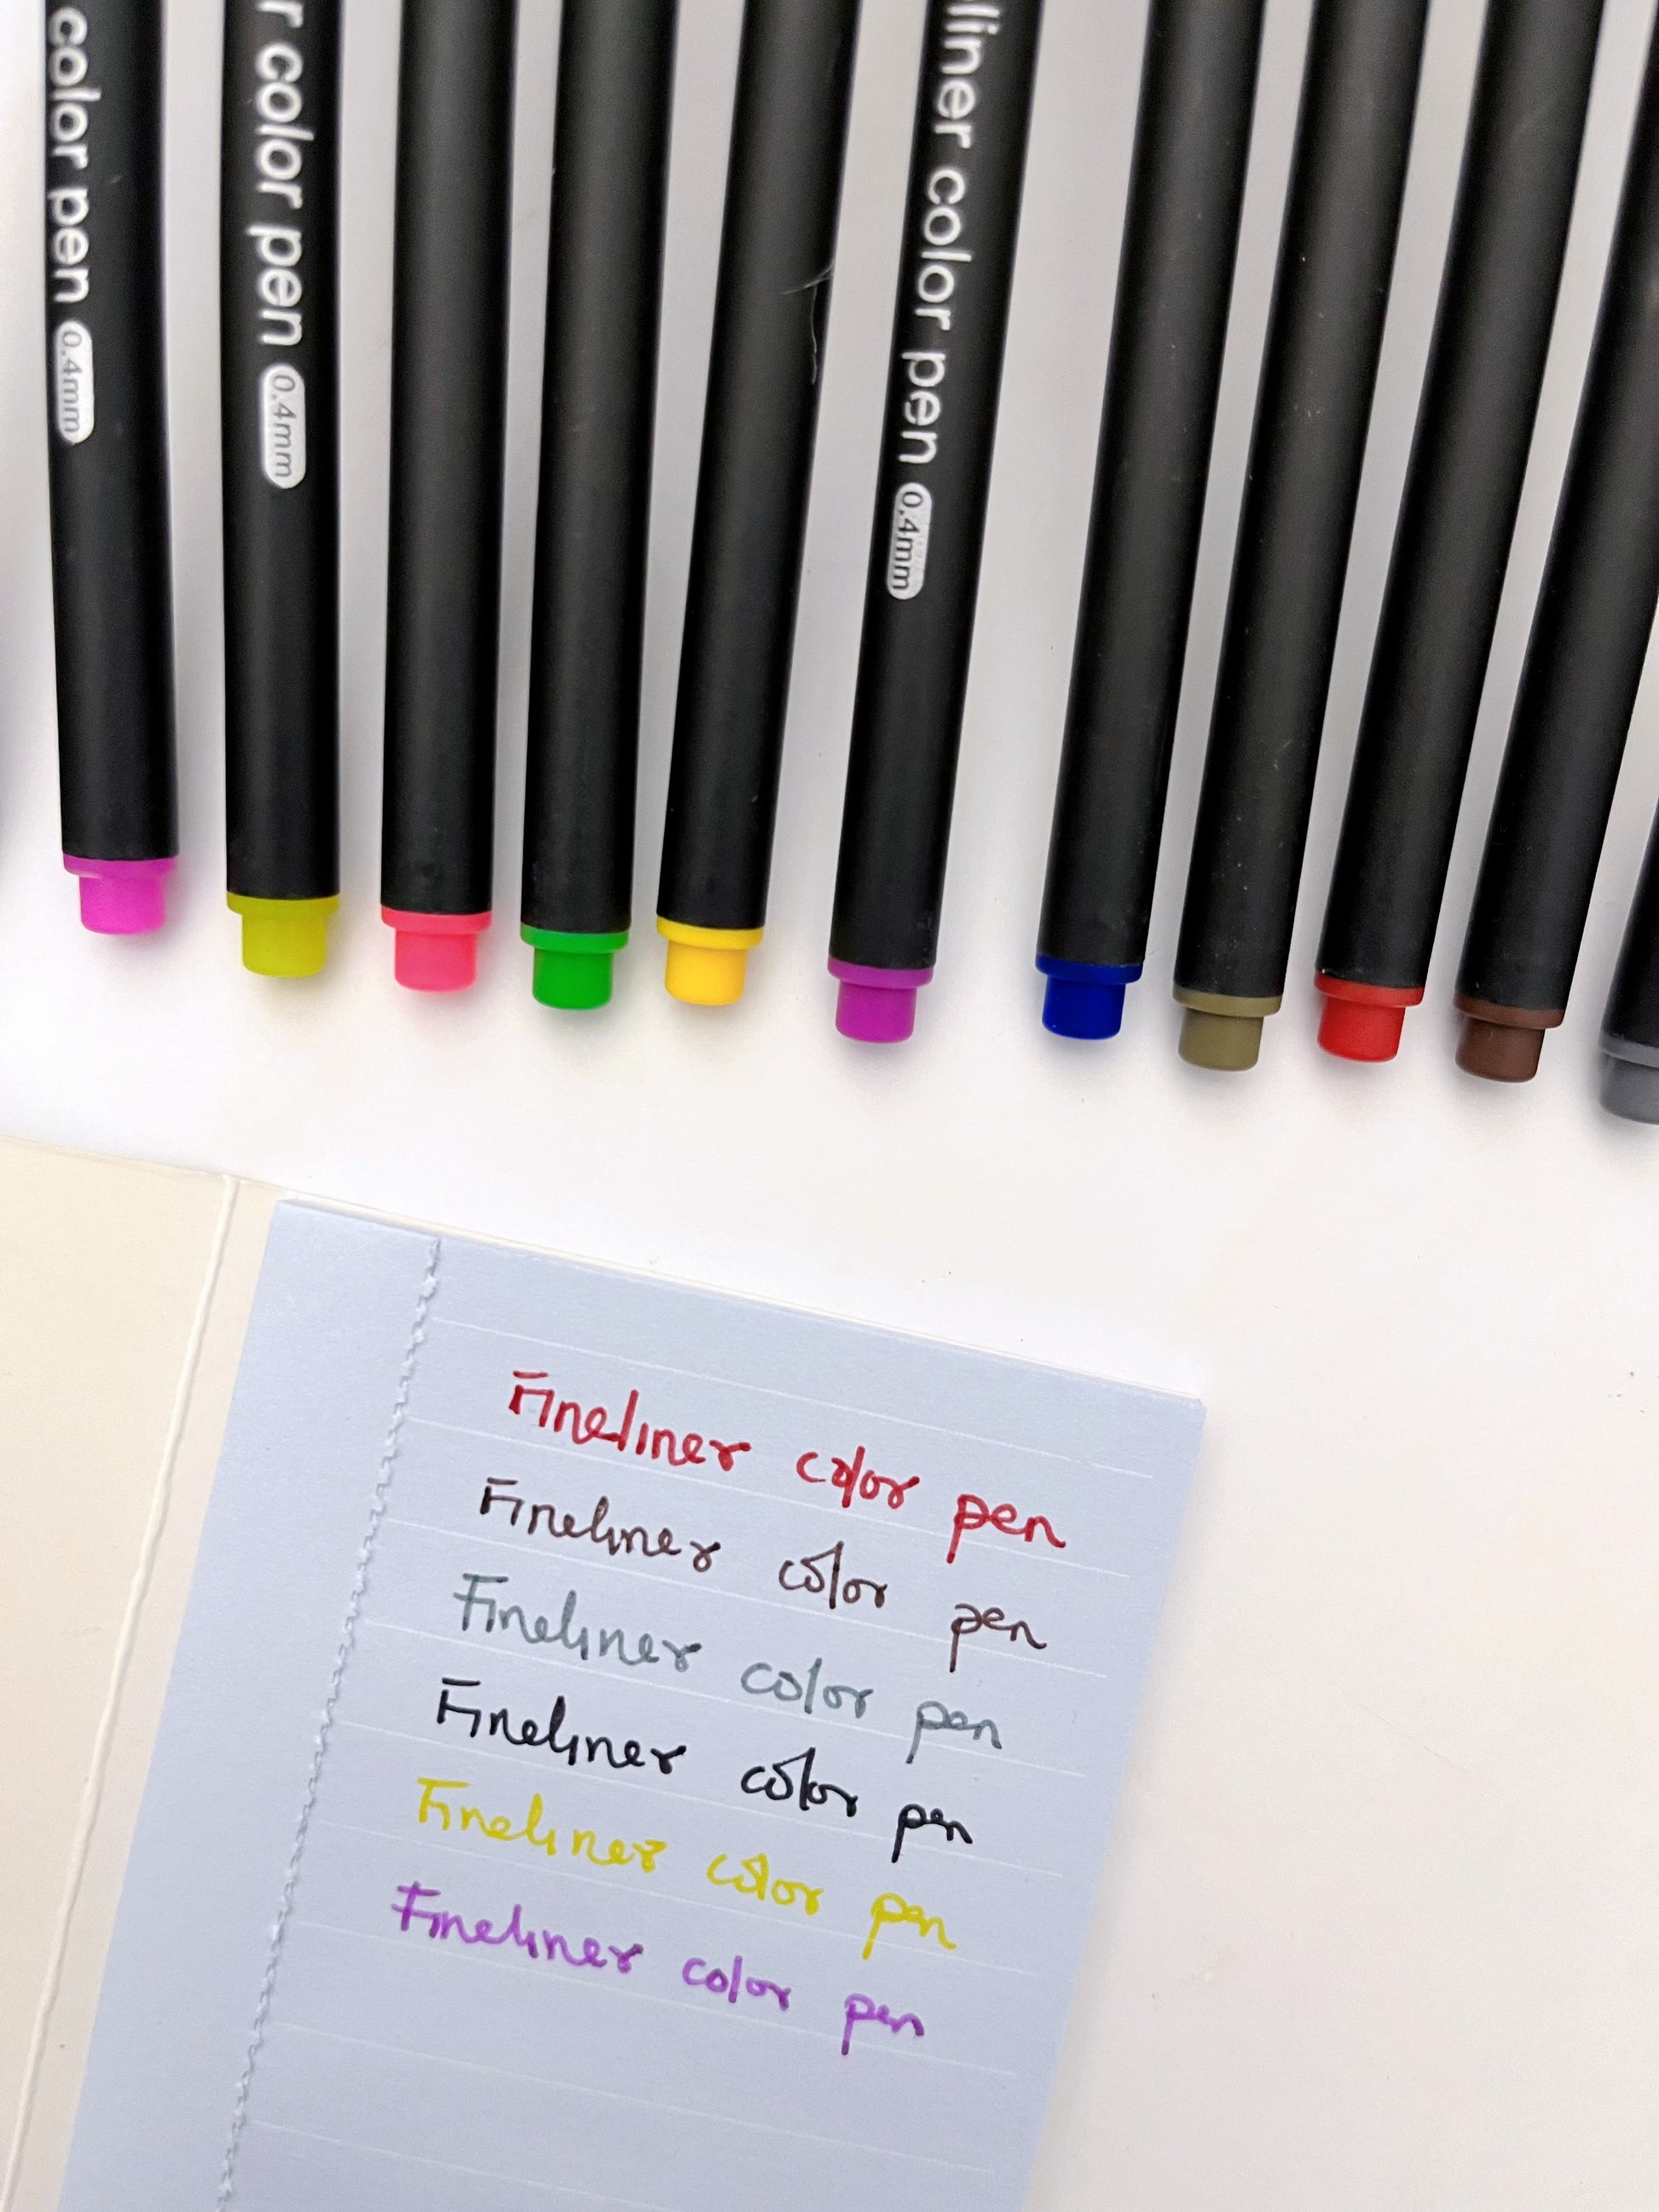 color pen 0.4mm
r color pen 0.4mm
liner color pen 0.4mm
Fineliner color pen
Fineliner color pen
Fineliner color pen
Fineliner color pen
Fineliner color pen
Fineliner color pen